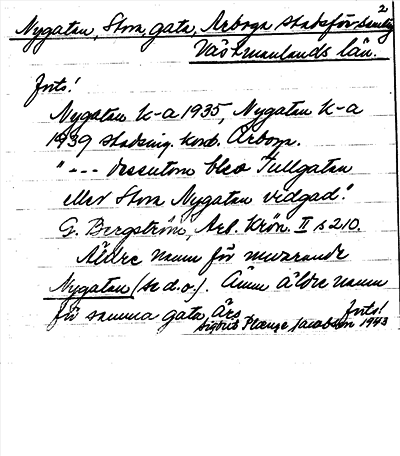 2
Nygatan, Stora, gata, Arboga stadsförsamling
Västmanlands län.
forts!
Nygatan k-a 1935, Nygatan k-a
1939 stadsing. kont. Arboga.
"--- dessutom blev Tullgatan
eller Stora Nygatan vidgad."
G. Bergström, Arb. Krön. II s 210.
Äldre namn för nuvarande
Nygatan (se d.o.). Ännu äldre namn
för samma gata, är
forts!
Sigbrit Plænge Jacobson 1943